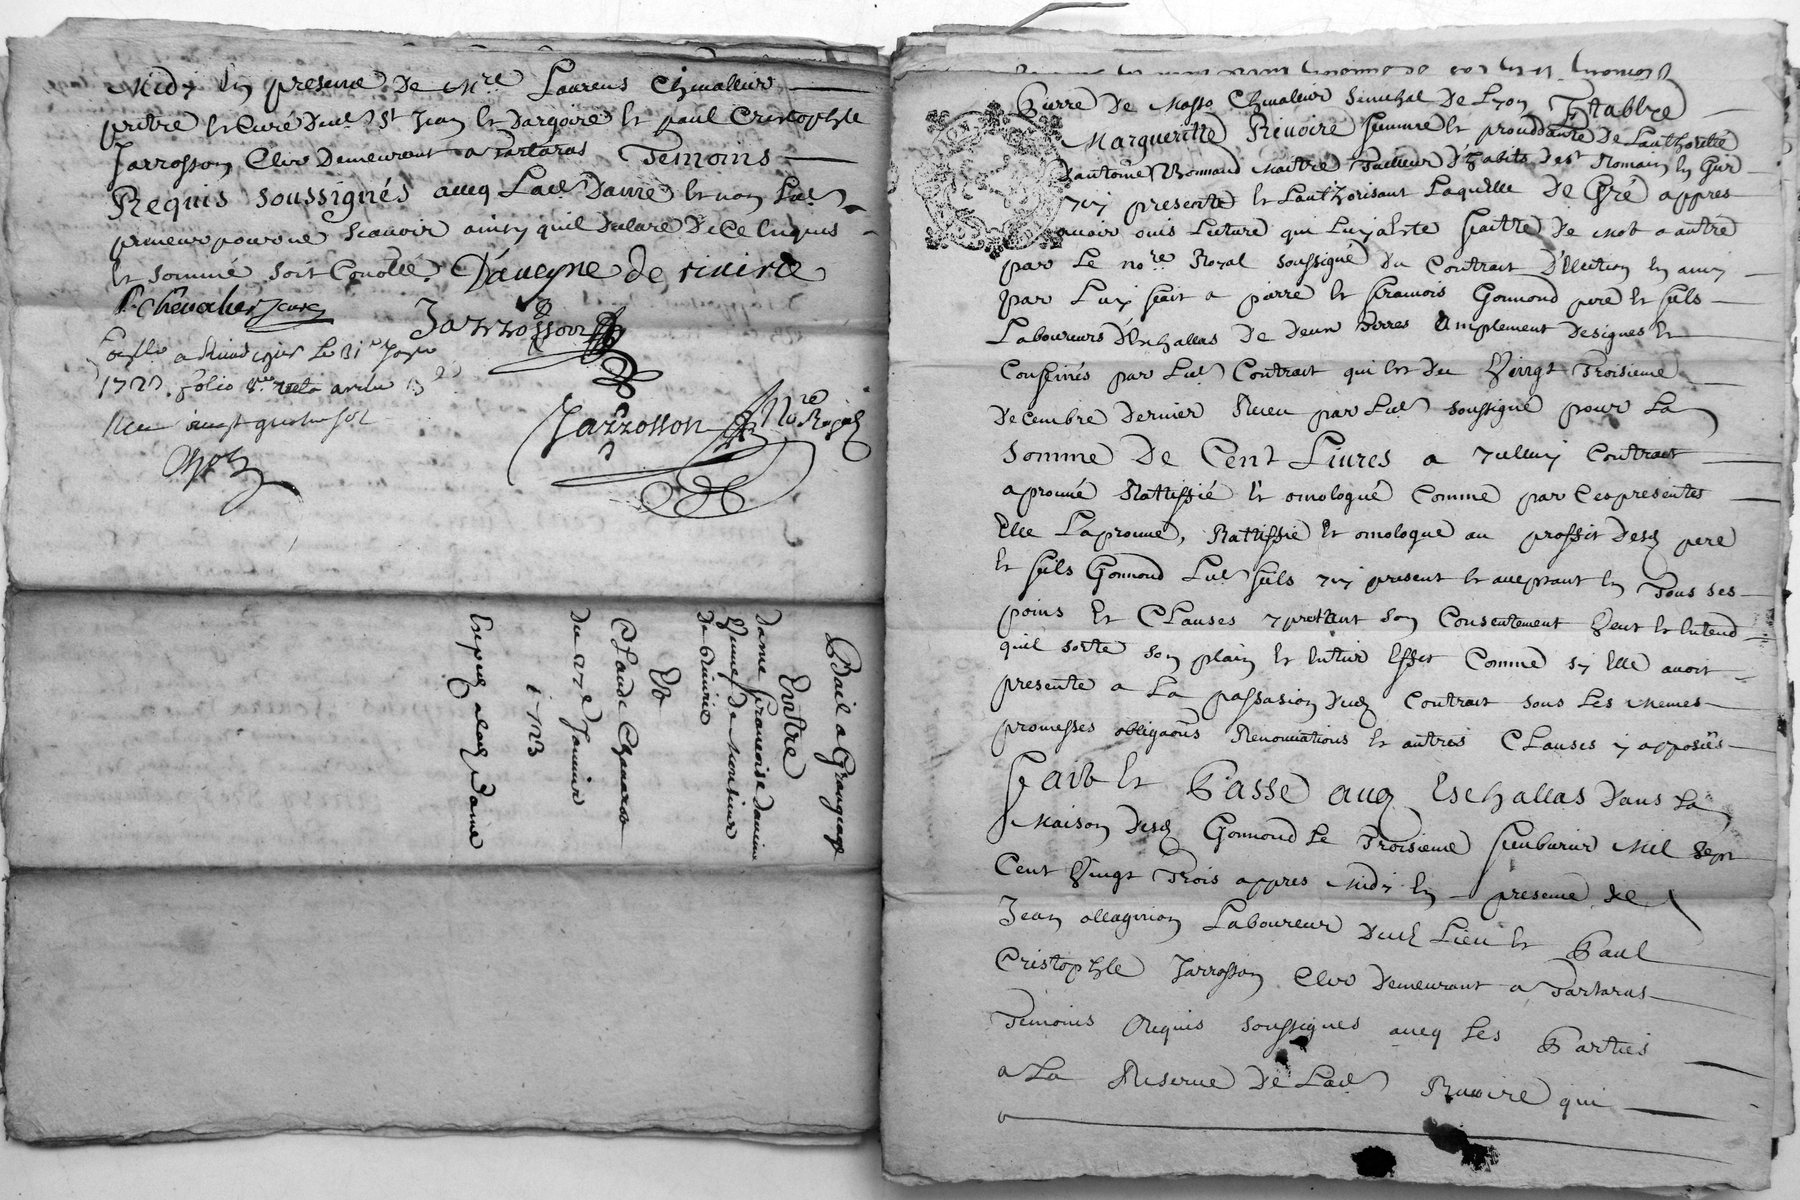 Midy En presence De Mre Laurens Chivallier
pritre Et Curé Dud St Jean Et Dargoire Et paul Cristophle
Jarrosson Clerc Demeurant a Tartaras Temoins
Requis soussignés avecq Lad Dame Et non Led
preneur pour ne scavoir ainsy quil Declare De Ce Enquis
Et sommé soit Conollé Daveyne de riuirie
Chevalier Curé
Jarrosson
Le 31e
1723 folio recto
Recu vingt quatre sol
Jarrosson Nore Royal
Bail a Grangeage
Entre
dame francoise daveine
Veuve de Monsieur
de Riuirie
Et
Claude Chanaron
Du 27e Janvier
1723
Exped a lad Dame
Pierre De Masso Chivallier Senechal De Lyon Etablye
Margueritte Rivoire femme Et procedante De Lauthorité
Dantoine Bonnand Maitre Tailleur D'habits De St Romain En Gier
icy presente Et Lauthorisant Laquelle De Gré appres
avoir ouis Lecture qui Luy a Ete faitte De Mot a autre
par Le nore Royal soussigné Du Contrait D'Election En amy
par Luy fait a pierre Et francois Gonnond pere Et fils
Laboureurs D'Echallas De Deux Terres amplement Designes Et
Confinés par Led Contrait qui Est Du Vingt Troisieme
Decembre Dernier Receu par Led soussigné pour La
somme De Cent Livres a Contrait
aprouvé Rattiffié Et omologué Comme par Ces presentes
Elle Laprouve, Rattiffie Et omologue au proffit Desd pere
Et fils Gonnond Led fils icy present Et acceptant En Tous ses
poins Et Clauses y prettant son Consentement Veut Et Entend
quil sorte son plain Et Entier Effet Comme sy Elle avoit
presente a La passasion Dud Contrait sous Les Memes
promesses obligaons Renonciations Et autres Clauses y apposés
Fait Et Passé aud Eschallas Dans La
Maison Desd Gonnond Le Troisieme feuburier Mil Sept
Cent Vingt Trois appres Midy En presence De
Jean ollagnion Laboureur Dud Lieu Et Paul
Cristophle Jarrosson Clerc Demeurant a Tartaras
Temoins Requis soussignes avecq Les Parties
a La Reserve De Lad Rivoire qui